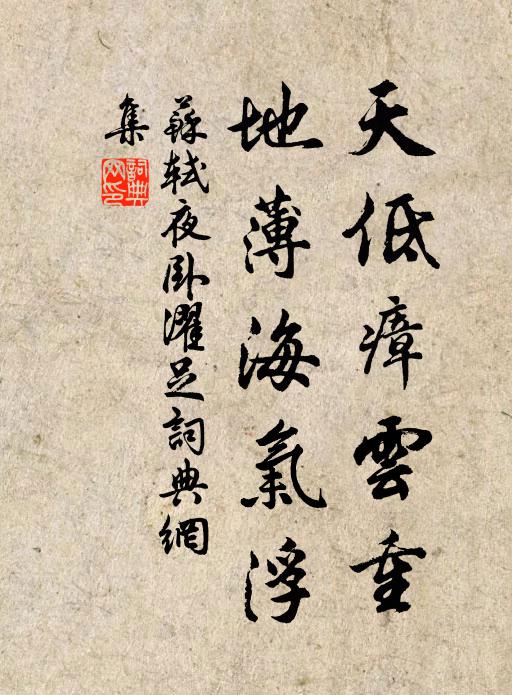 天低瘴雲重
地薄海氣浮
蘇軾夜臥濯足詞典網
集
詞典网印